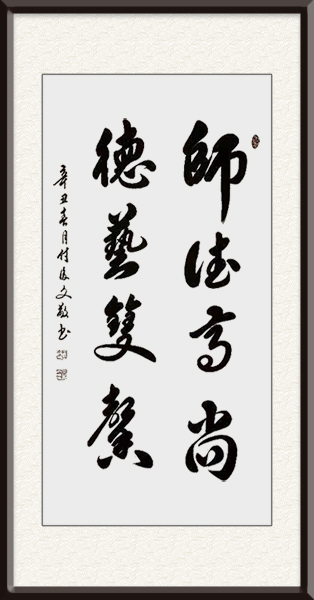 師德高尚
德藝雙馨
辛丑春月付俊文敬书